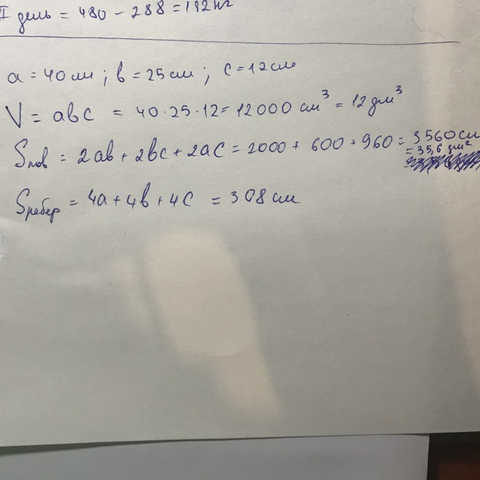 II день = 480 - 288 = 192 кг
a = 40 см ; b = 25 см ; c = 12 см
V = abc = 40 · 25 · 12 = 12000 см³ = 12 дм³
Sпов = 2ab + 2bc + 2ac = 2000 + 600 + 960 = 3560 см
= 35,6 дм²
Sребер = 4a + 4b + 4c = 308 см